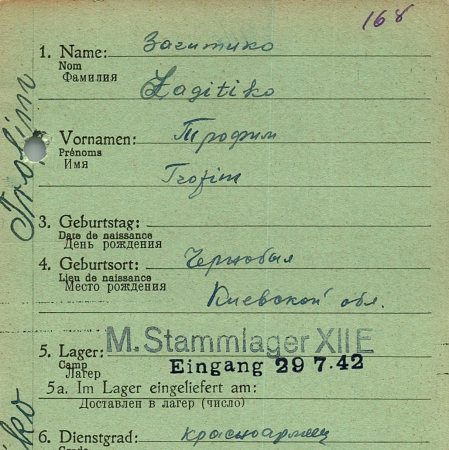 168
1. Name: Загитико
Nom
Фамилия
Zagitiko
Vornamen: Трофим
Prénoms
Имя
Trofim
3. Geburtstag:
Date de naissance
День рождения
4. Geburtsort: Чернобыл
Lieu de naissance
Место рождения
Киевской обл.
M. Stammlager XII E
5. Lager:
Camp
Лагер
Eingang 29 7.42
5a. Im Lager eingeliefert am:
Доставлен в лагер (число)
6. Dienstgrad: красноармеец
Trofim